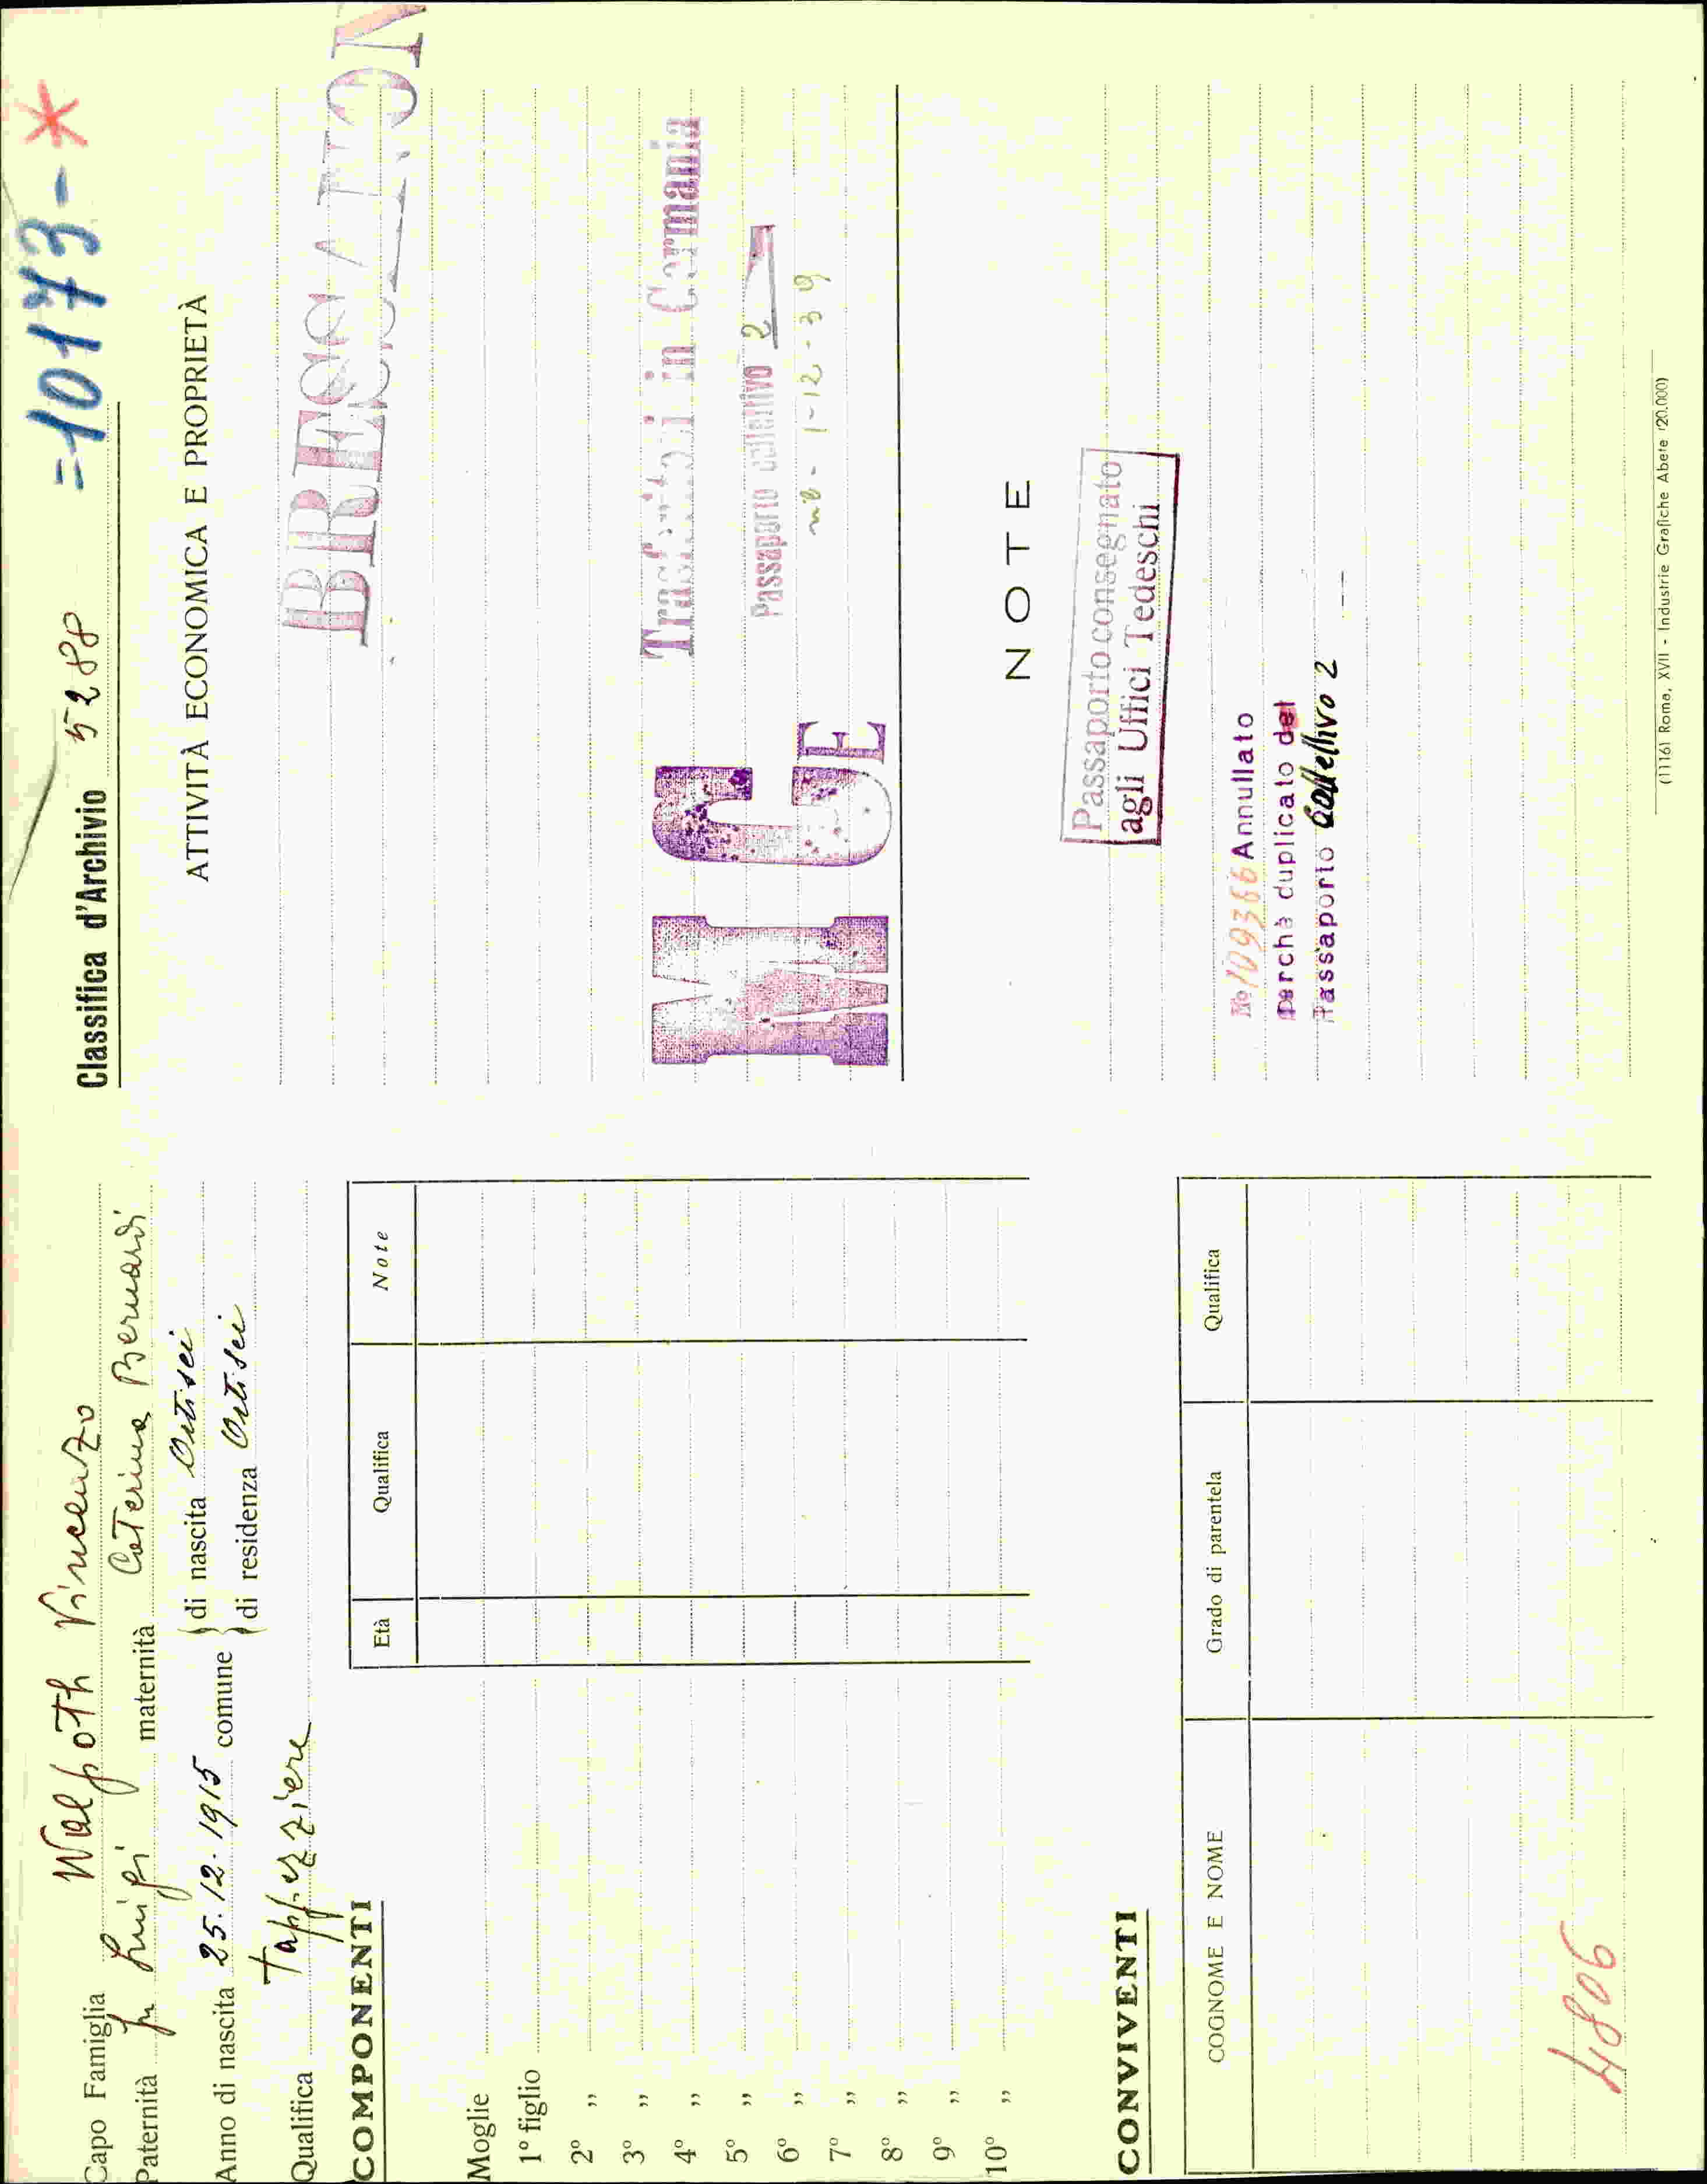 Capo Famiglia Walpoth Vincenzo
Paternità fu Luigi maternità Caterina Bernardi
Anno di nascita 25.12.1915 comune } di nascita Ortisei
} di residenza Ortisei
Qualifica Tappezziere
COMPONENTI
Età Qualifica Note
Moglie
1° figlio
2° ”
3° ”
4° ”
5° ”
6° ”
7° ”
8° ”
9° ”
10° ”
CONVIVENTI
COGNOME E NOME Grado di parentela Qualifica
4806
=10173-*
Classifica d'Archivio 5288
ATTIVITÀ ECONOMICA E PROPRIETÀ
M C E
Trasferitosi in Germania
Passaporto collettivo 2
1-12-39
NOTE
Passaporto consegnato
agli Uffici Tedeschi
No 109366 Annullato
perchè duplicato del
Passaporto Collettivo 2
(11161 Roma, XVII - Industrie Grafiche Abete (20.000)